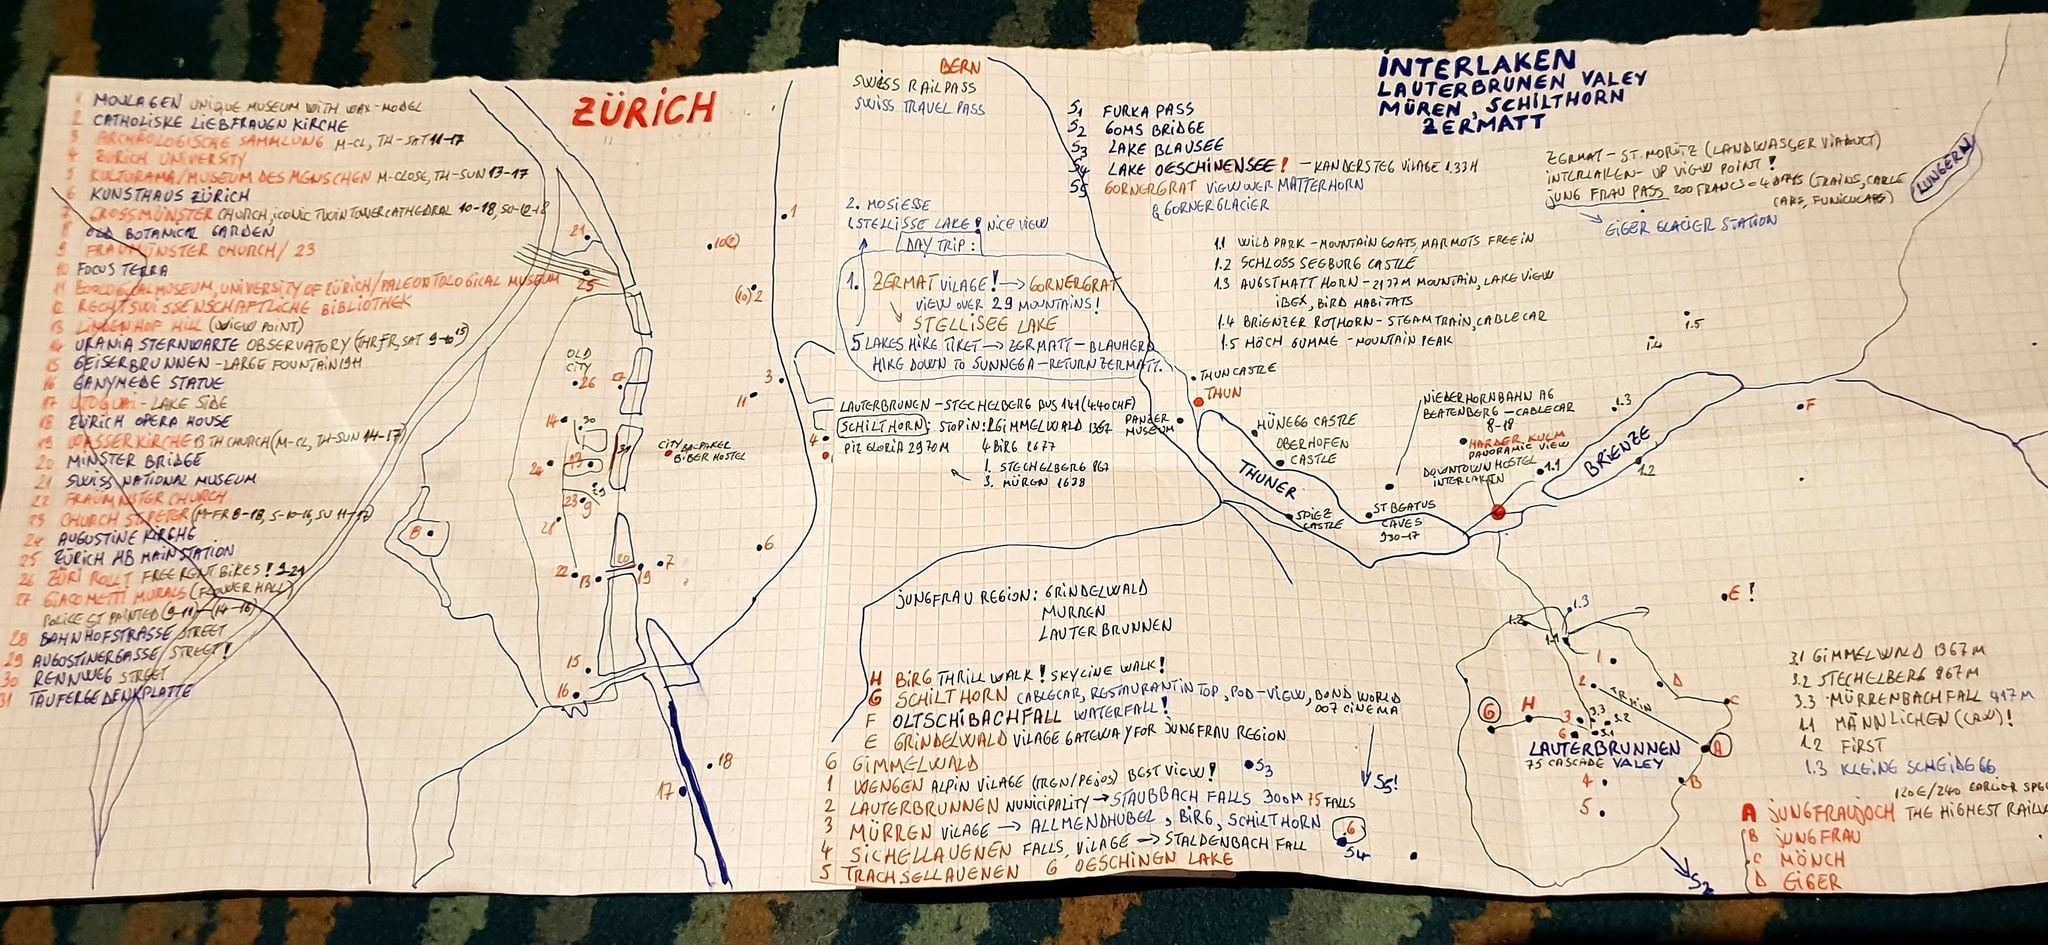 ZÜRICH
1 MOULAGEN UNIQUE MUSEUM WITH WAX-MODEL
2 CATHOLISKE LIEBFRAUEN KIRCHE
3 ARCHÄOLOGISCHE SAMMLUNG M-CL, TH-SAT 11-17
4 ZURICH UNIVERSITY
5 KULTURAMA/MUSEUM DES MENSCHEN M-CLOSE, TH-SUN 13-17
6 KUNSTHAUS ZÜRICH
7 GROSSMÜNSTER CHURCH, ICONIC TWIN TOWER CATHEDRAL 10-18, SO-12-18
8 OLD BOTANICAL GARDEN
9 FRAUMÜNSTER CHURCH/ 23
10 FOCUS TERRA
11 ZOOLOGICAL MUSEUM, UNIVERSITY OF ZÜRICH/PALEONTOLOGICAL MUSEUM
12 RECHTSWISSENSCHAFTLICHE BIBLIOTHEK
13 LINDENHOF HILL (VIEW POINT)
14 URANIA STERNWARTE OBSERVATORY (THR, FR, SAT 9-10 15)
15 GEISERBRUNNEN - LARGE FOUNTAIN 1911
16 GANYMEDE STATUE
17 UTOQUAI - LAKE SIDE
18 ZÜRICH OPERA HOUSE
19 WASSERKIRCHE 13TH CHURCH (M-CL, TH-SUN 14-17)
20 MINSTER BRIDGE
21 SWISS NATIONAL MUSEUM
22 FRAUMNSTER CHURCH
23 CHURCH ST. PETER (M-FR 8-18, S-10-16, SU 11-17)
24 AUGUSTINE KIRCHE
25 ZÜRICH HB MAIN STATION
26 ZÜRI ROLLT FREE RENT BIKES! 9-21
27 GIACOMETTI MURALS (FLOWER HALL)
POLICE ST PAINTED (9-11)-(14-16)
28 BAHNHOFSTRASSE STREET
29 AUGOSTINERGASSE STREET!
30 RENNWEG STREET
31 TAUFERGEDENKPLATTE
OLD CITY
CITY BACKPAKER
BIBER HOSTEL
21
25
1
10(2)
(10) 2
3
11
4
26
27
14
30
13
24
31
23
29
9
28
8
6
22
13
20
19
7
15
16
18
17
BERN
SWISS RAILPASS
SWISS TRAVEL PASS
INTERLAKEN
LAUTERBRUNEN VALEY
MÜREN, SCHILTHORN
ZERMATT
S1 FURKA PASS
S2 GOMS BRIDGE
S3 LAKE BLAUSEE
S4 LAKE OESCHINENSEE! - KANDERSTEG VILAGE 1.33H
S5 GORNERGRAT VIEW OVER MATTERHORN
& GORNER GLACIER
ZERMAT - ST. MORITZ (LANDWASSER VIADUCT)
INTERLAKEN - UP VIEW POINT!
JUNG FRAU PASS 200 FRANCS = 4 DAYS (TRAINS, CABLE
CARS, FUNICULARS)
EIGER GLACIER STATION
LUNGERN
2. MOSJESSE
1 STELLISSE LAKE! NICE VIEW
DAY TRIP:
1. ZERMAT VILAGE! → GORNERGRAT
VIEW OVER 29 MOUNTAINS!
STELLISEE LAKE
5 LAKES HIKE TIKET → ZERMATT - BLAUHERD
HIKE DOWN TO SUNNEGA - RETURN ZERMATT.
LAUTERBRUNEN - STECHELBERG BUS 141 (4.40 CHF)
SCHILTHORN: STOP IN: 2. GIMMELWALD 1367
PIZ GLORIA 2970M 4 BIRG 2677
1. STECHELBERG 867
3. MÜREN 1638
1.1 WILD PARK - MOUNTAIN GOATS, MARMOTS FREE IN
1.2 SCHLOSS SEEBURG CASTLE
1.3 AUGSTMATT HORN - 2137M MOUNTAIN, LAKE VIEW
IBEX, BIRD HABITATS
1.4 BRIENZER ROTHORN - STEAM TRAIN, CABLE CAR
1.5 HÖCH GUMME - MOUNTAIN PEAK
THUN CASTLE
THUN
PANZER
MUSEUM
HÜNEGG CASTLE
OBERHOFEN
CASTLE
THUNER
SPIEZ
CASTLE
ST BEATUS
CAVES
930-17
NIEDERHORNBAHN AG
BEATENBERG - CABLECAR
8-18
HARDER KULM
PANORAMIC VIEW
DOWNTOWN HOSTEL
INTERLAKEN
1.1
1.2
1.3
1.4
1.5
BRIENZE
F
E!
JUNGFRAU REGION: GRINDELWALD
MURREN
LAUTERBRUNNEN
H BIRG THRILL WALK! SKYLINE WALK!
G SCHILTHORN CABLECAR, RESTAURANT IN TOP, POD-VIEW, BOND WORLD
007 CINEMA
F OLTSCHIBACHFALL WATERFALL!
E GRINDELWALD VILAGE GATEWAY FOR JUNGFRAU REGION
6 GIMMELWALD
1 WENGEN ALPIN VILAGE BEST VIEW!
2 LAUTERBRUNNEN NUNICIPALITY → STAUBBACH FALLS 300M 75 FALLS
3 MÜRREN VILAGE → ALLMENDHUBEL, BIRG, SCHILTHORN
4 SICHELLAUENEN FALLS, VILLAGE → STALDENBACH FALL
5 TRACHSELLAUENEN 6 OESCHINEN LAKE
S3
S5!
6
S4
1.2
1.3
1.1
1
2
TRAIN
D
C
G
H
3
3.3
3.2
3.1
6
A
LAUTERBRUNNEN
75 CASCADE VALEY
4
B
5
S2
3.1 GIMMELWALD 1367M
3.2 STECHELBERG 867M
3.3 MÜRRENBACHFALL 417M
1.1 MÄNNLICHEN (CAW)!
1.2 FIRST
1.3 KLEINE SCHEIDEGG
120E/240 EARLIOR
A JUNGFRAUJOCH THE HIGHEST
B JUNGFRAU
C MÖNCH
D EIGER